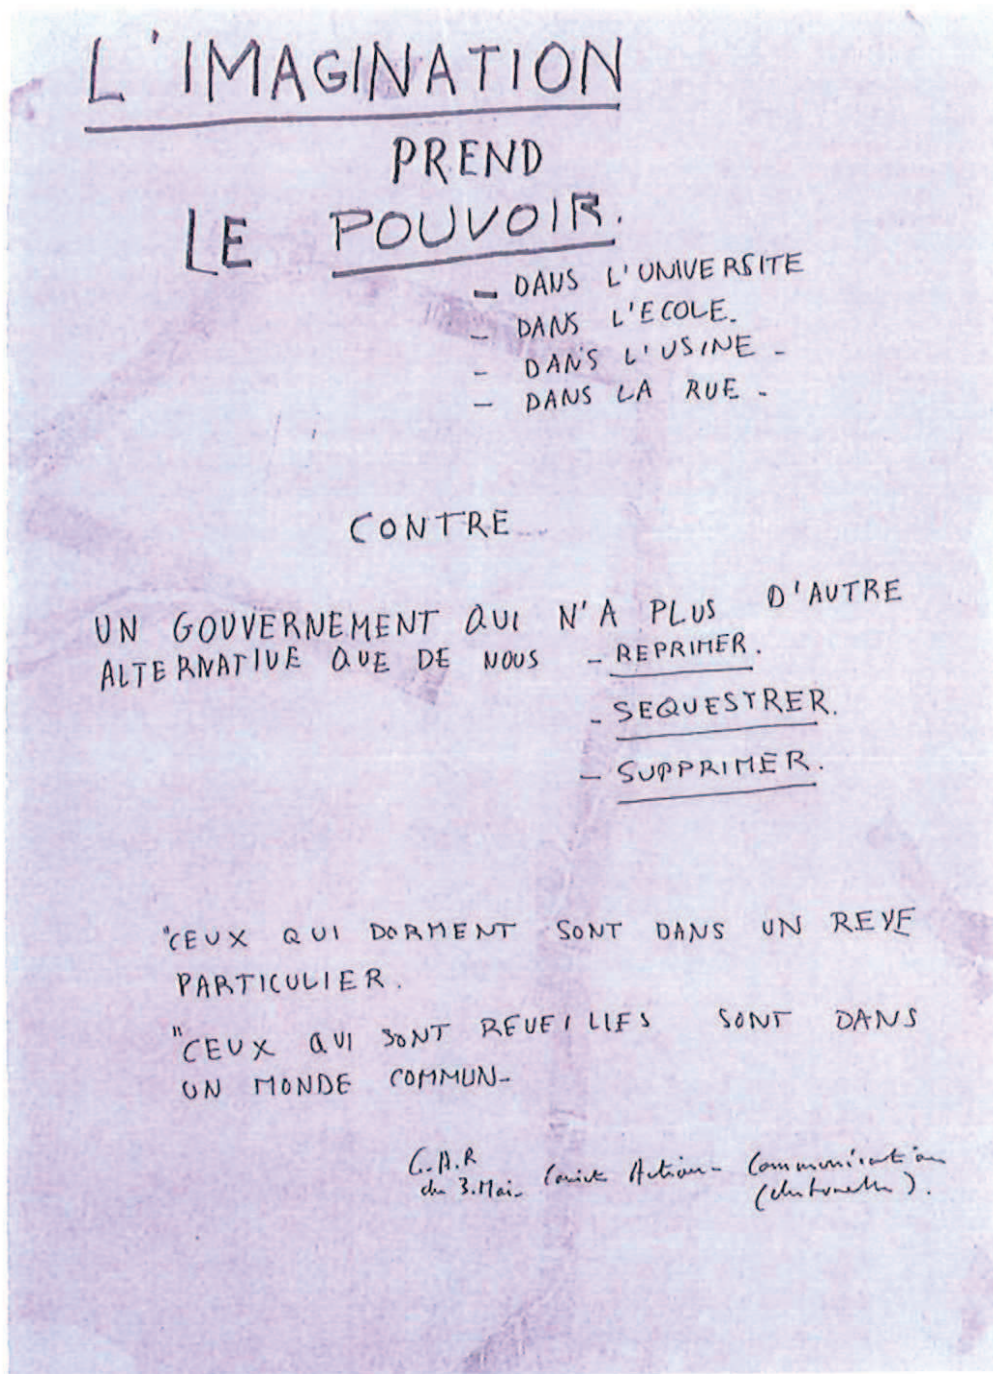 L'IMAGINATION
PREND
LE POUVOIR.
- DANS L'UNIVERSITE
- DANS L'ECOLE.
- DANS L'USINE -
- DANS LA RUE -
CONTRE
UN GOUVERNEMENT QUI N'A PLUS D'AUTRE
ALTERNATIVE QUE DE NOUS - REPRIMER.
- SEQUESTRER.
- SUPPRIMER.
"CEUX QUI DORMENT SONT DANS UN REVE
PARTICULIER.
"CEUX QUI SONT REVEILLES SONT DANS
UN MONDE COMMUN-
C.A.R
du 3.Mai- Comité Action- Communication